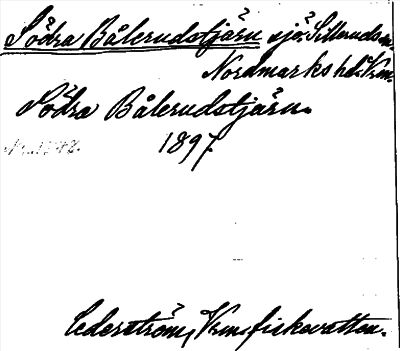 Södra Bålerudstjärn sjö. Sillerud sn.
Nordmarks hd. Vrm.
Södra Bålerudstjärn.
1897.
Cederström, Vrm. fiskevatten.